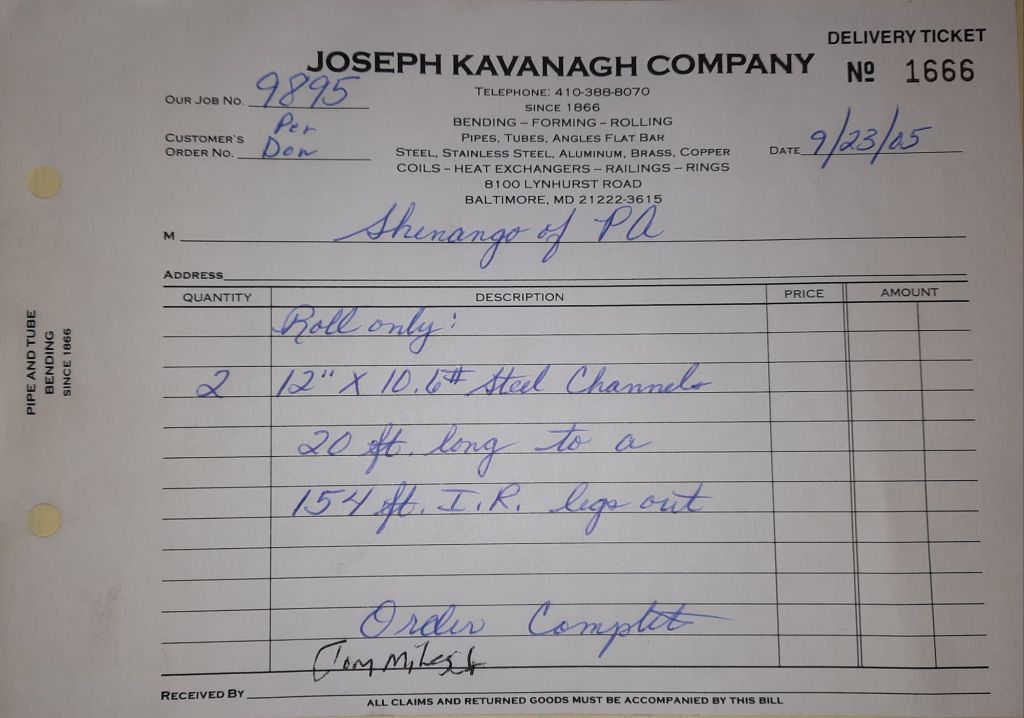 DELIVERY TICKET
JOSEPH KAVANAGH COMPANY
Nº 1666
TELEPHONE: 410-388-8070
SINCE 1866
OUR JOB NO. 9895
BENDING – FORMING – ROLLING
PIPES, TUBES, ANGLES FLAT BAR
CUSTOMER'S Per
ORDER NO. Don
STEEL, STAINLESS STEEL, ALUMINUM, BRASS, COPPER
DATE 9/23/05
COILS – HEAT EXCHANGERS – RAILINGS – RINGS
8100 LYNHURST ROAD
BALTIMORE, MD 21222-3615
M Shenango of PA
ADDRESS
QUANTITY DESCRIPTION PRICE AMOUNT
Roll only:
2 12" X 10.6# Steel Channels
20 ft. long to a
154 ft. I.R. legs out
Order Complet
Tom
RECEIVED BY
ALL CLAIMS AND RETURNED GOODS MUST BE ACCOMPANIED BY THIS BILL
PIPE AND TUBE
BENDING
SINCE 1866